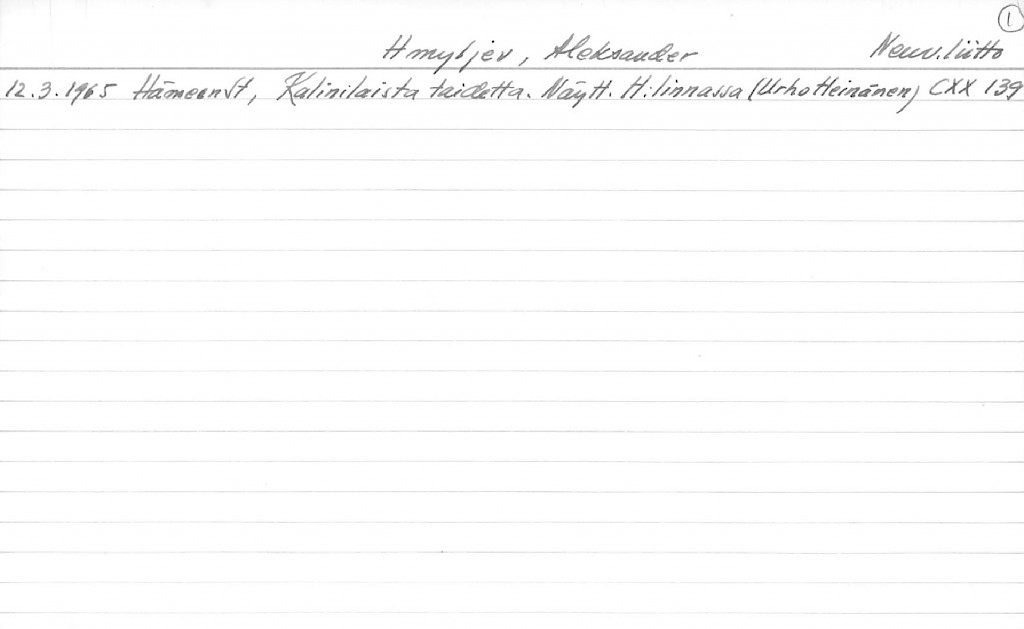 1
Hmyljev, Aleksander Neuv.liitto
12.3.1965 HämeenSt, Kalinilaista taidetta. Näytt. H:linnassa (Urho Heinänen) CXX 139